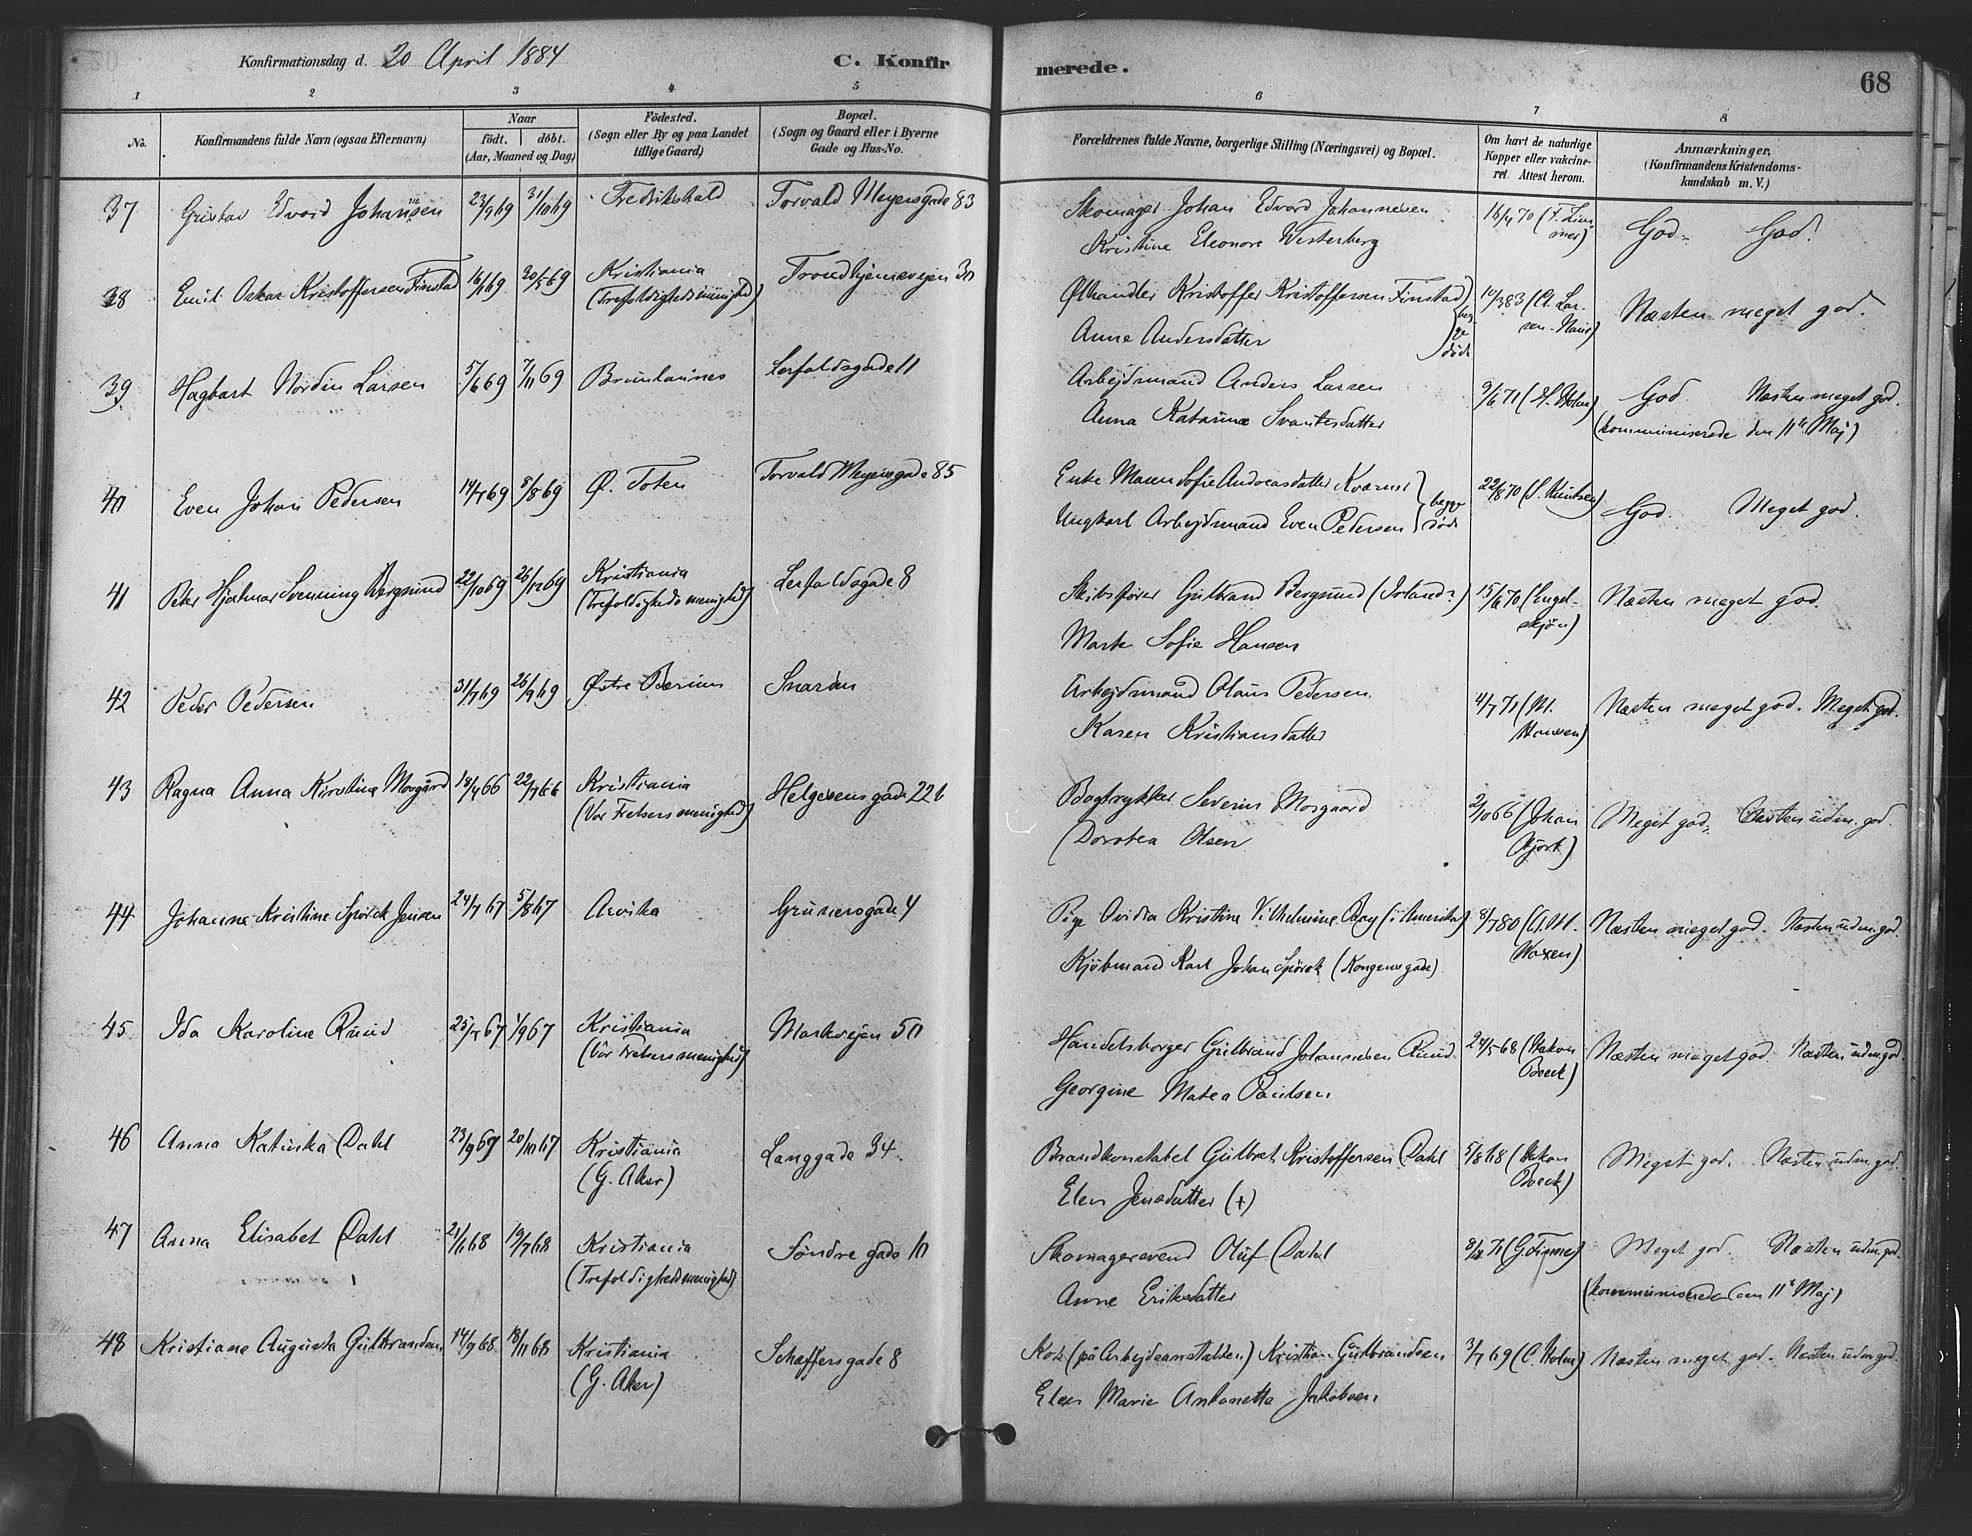 Konfirmationsdag d. 20 April 1884
C. Konfirmerede.
68
1 2 3 4 5 6 7 8
No.
Konfirmandens fulde Navn (ogsaa Efternavn)
Naar
födt. döbt.
(Aar, Maaned og Dag)
Födested.
(Sogn eller By og paa Landet
tillige Gaard)
Bopæl.
(Sogn og Gaard eller i Byerne
Gade og Hus-No.
Forældrenes fulde Navne, borgerlige Stilling (Næringsvei) og Bopæl.
Om havt de naturlige
Kopper eller vakcine-
ret. Attest herom.
Anmærkninger.
(Konfirmandens Kristendoms-
kundskab m. V.)
37 Gustav Edvard Johansen 23/9 69 31/10 69 Fredrikshald Torvald Meyersgade 83
Skomager Johan Edvard Johannesen
Kristine Eleonore Westerberg
16/4 70
God. God.
38 Emil Oskar Kristoffersen Finstad 16/1 69 30/5 69 Kristiania
(Trefoldighedsmenighed)
Trondhjemsvejen 30
Ølhandler Kristoffer Kristoffersen Finstad
Anne Andersdatter
beg-
ge
døde
10/3 83 (A. Lar-
sen-Næris)
Næsten meget god.
39 Hagbart Nordin Larsen 5/6 69 7/11 69 Brunlanæs Lerfaldsgade 11
Arbejdsmand Anders Larsen
Anna Katarina Svantesdatter
9/6 71 (H. Holm)
God. Næsten meget god.
(kommuniserede den 11te Maj)
40 Even Johan Pedersen 14/7 69 8/8 69 Ø. Toten Torvald Meyersgade 85
Enke Maren Sofie Andreasdatter Kværnes
Ungkarl Arbejdsmand Even Pedersen
begge
døde
22/8 70 (S. Knutsen)
God. Meget god.
41 Peter Hjalmar Svenning Bergsund 22/10 69 26/12 69 Kristiania
(Trefoldigheds menighed)
Lerfaldsgade 8
Skibsfører Gulbrand Bergsund (Irland?)
Marte Sofie Hansen
15/6 70 (Engel-
skjøn)
Næsten meget god.
42 Peder Pedersen 31/7 69 26/9 69 Østre Bærum Snarøen
Arbejdsmand Olaus Pedersen
Karen Kristiansdatter
4/7 71 (M.
Hansen)
Næsten meget god. Meget god.
43 Ragna Anna Kirstine Mosgård 18/4 66 22/7 66 Kristiania
(Vor Frelsers menighed)
Helgesens gade 22 b
Bogtrykker Severin Mosgaard
Dorotea Olsen
2/10 66 (Johan
Hjort)
Meget god. Næsten udm. god.
44 Johanne Kristine Spørck Jensen 24/7 67 5/8 67 Arvika Grünersgade 4
Pige Ovidia Kristine Vilhelmine Bay (i Amerika)
Kjøbmand Karl Johan Spørck (Kongensgade)
8/7 80 (A. M.
Waxen)
Næsten meget god. Næsten udm. god.
45 Ida Karoline Ruud 25/7 67 1/9 67 Kristiania
(Vor Frelsers menighed)
Markvejen 50
Handelsborger Gulbrand Johannesen Ruud
Georgine Matea Paulsen
24/5 68 (Hakon
Boeck)
Næsten meget god. Næsten udm. god.
46 Anna Katinka Dahl 23/9 67 20/10 67 Kristiania
(G. Aker)
Langgade 34.
Brandkonstabel Gulbrat Kristoffersen Dahl
Elen Jensdatter (+)
5/8 68 (Hakon
Boeck)
Meget god. Næsten udm. god.
47 Anna Elisabet Dahl 21/1 68 19/7 68 Kristiania
(Trefoldighedsmenighed)
Søndre gade 10
Skomagersvend Oluf Dahl
Anne Eriksdatter
Meget god. Næsten udm. god.
(kommuniserede den 11te Maj)
48 Kristiane Augusta Gulbrandsen 14/9 68 18/11 68 Kristiania
(G. Aker)
Schæffersgade 8
Kok (på Arbejdsanstalten) Kristian Gulbrandsen
Elen Marie Antonetta Jakobsen
3/7 69 (C. Holm)
Næsten meget god. Næsten udm. god.